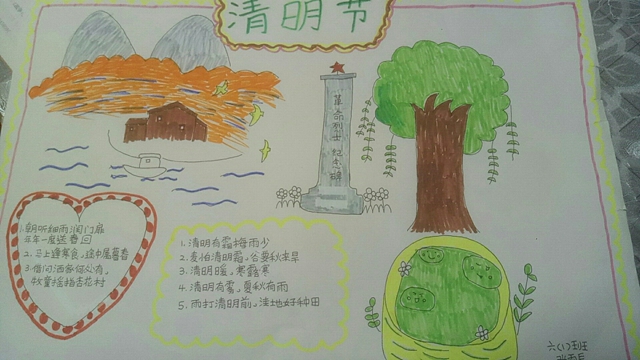 清明节
革命烈士纪念碑
1.朝听细雨润门扇
年年一度送春回
2.马上逢寒食,途中属暮春
3.借问酒家何处有,
牧童摇指杏花村
1.清明有霜梅雨少
2.麦怕清明霜,谷要秋来旱
3.清明暖,寒露寒
4.清明有雾,夏秋有雨
5.雨打清明前,洼地好种田
六(1)班